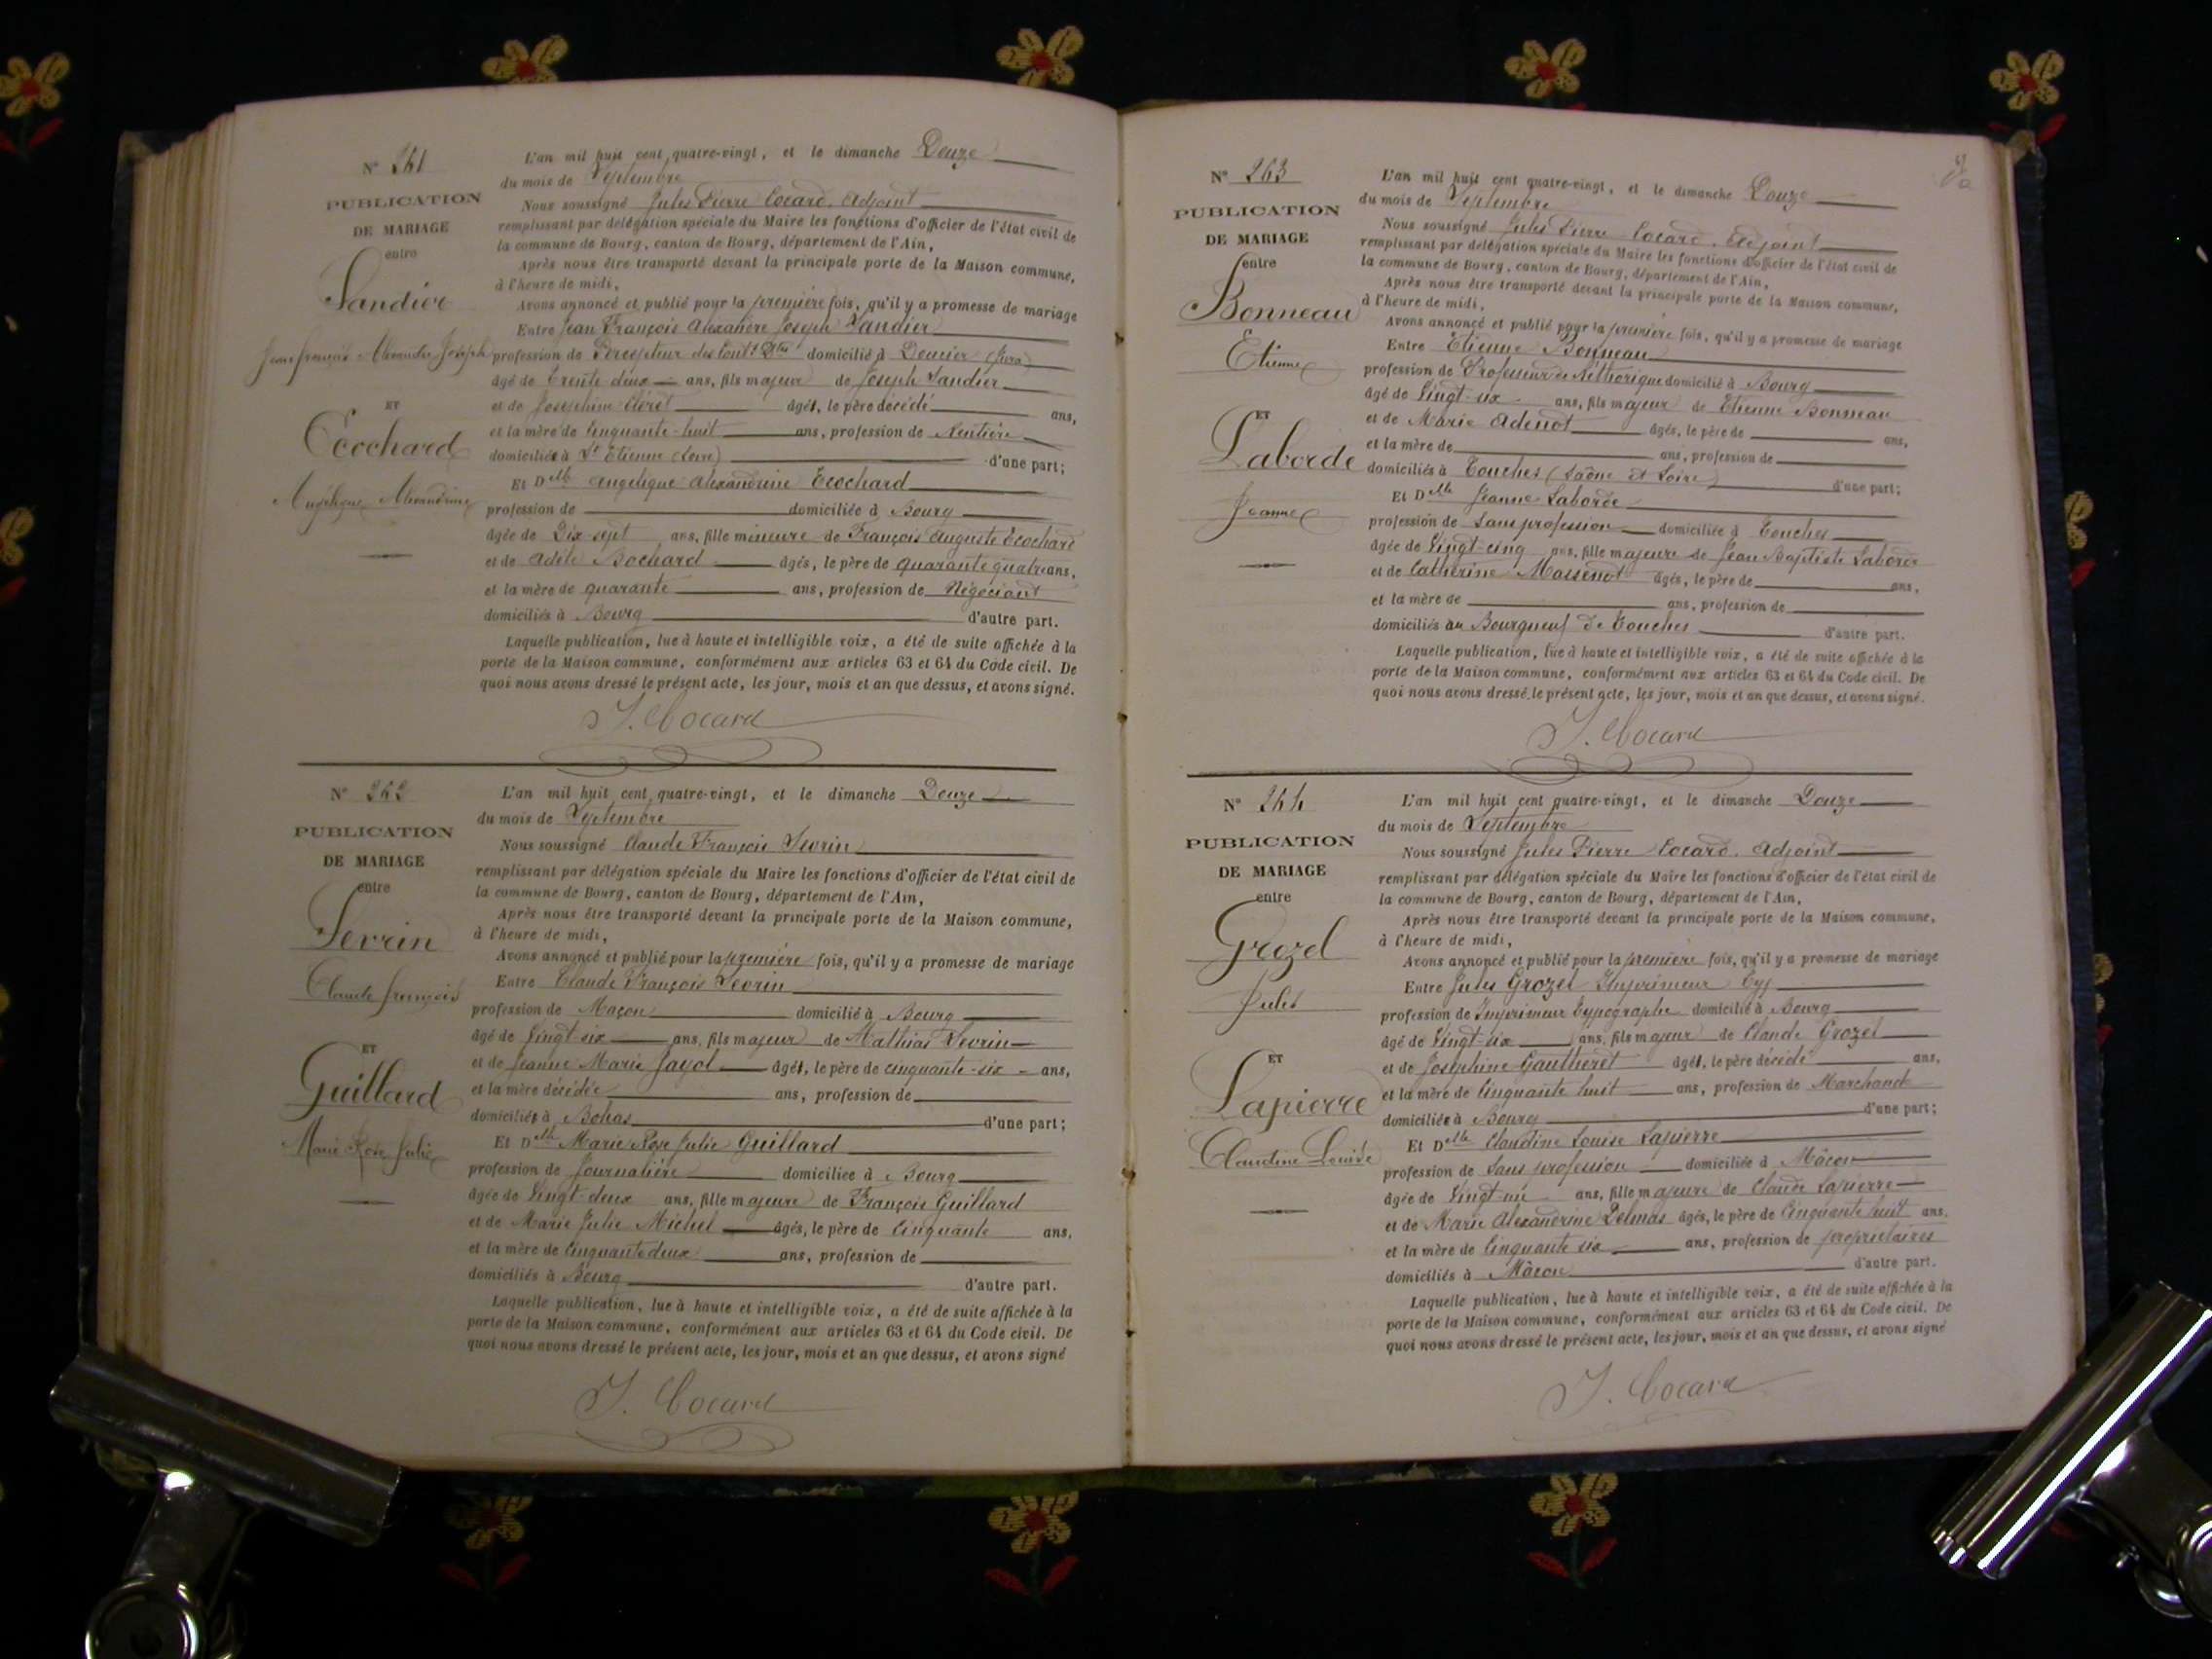 N° 241
PUBLICATION
DE MARIAGE
entre
Jean François Alexandre Joseph
ET
Ecochard
Angélique Alexandrine
L'an mil huit cent quatre-vingt, et le dimanche Douze
du mois de Septembre
Nous soussigné Jules Pierre Cocard, Adjoint
remplissant par délégation spéciale du Maire les fonctions d'officier de l'état civil de
la commune de Bourg, canton de Bourg, département de l'Ain,
Après nous être transporté devant la principale porte de la Maison commune,
à l'heure de midi,
Avons annoncé et publié pour la première fois, qu'il y a promesse de mariage
Entre Jean François Alexandre Joseph
profession de Percepteur des Cont.s D.tes domicilié à Doucier (Jura)
âgé de Trente deux ans, fils majeur de Joseph
et de Joséphine âgés, le père décédé ans,
et la mère de Cinquante-huit ans, profession de Rentière
domiciliés à St Etienne (Loire) d'une part;
Et Dlle Angélique Alexandrine Ecochard
profession de domiciliée à Bourg
âgée de Dix sept ans, fille mineure de François Auguste Ecochard
et de Adèle Bochard âgés, le père de quarante quatre ans,
et la mère de quarante ans, profession de Négociant
domiciliés à Bourg d'autre part.
Laquelle publication, lue à haute et intelligible voix, a été de suite affichée à la
porte de la Maison commune, conformément aux articles 63 et 64 du Code civil. De
quoi nous avons dressé le présent acte, les jour, mois et an que dessus, et avons signé.
J. Cocard
N° 242
PUBLICATION
DE MARIAGE
entre
Sevrin
Claude François
ET
Guillard
Marie Rose Julie
L'an mil huit cent quatre-vingt, et le dimanche Douze
du mois de Septembre
Nous soussigné Claude François Sevrin
remplissant par délégation spéciale du Maire les fonctions d'officier de l'état civil de
la commune de Bourg, canton de Bourg, département de l'Ain,
Après nous être transporté devant la principale porte de la Maison commune,
à l'heure de midi,
Avons annoncé et publié pour la première fois, qu'il y a promesse de mariage
Entre Claude François Sevrin
profession de Maçon domicilié à Bourg
âgé de Vingt-six ans, fils majeur de Mathias Sevrin
et de Jeanne Marie Jayol âgés, le père de cinquante-six ans,
et la mère décédée ans, profession de
domiciliés à Bohas d'une part;
Et Dlle Marie Rose Julie Guillard
profession de Journalière domiciliée à Bourg
âgée de Vingt-deux ans, fille majeure de François Guillard
et de Marie Julie Michel âgés, le père de Cinquante ans,
et la mère de Cinquante deux ans, profession de
domiciliés à Bourg d'autre part.
Laquelle publication, lue à haute et intelligible voix, a été de suite affichée à la
porte de la Maison commune, conformément aux articles 63 et 64 du Code civil. De
quoi nous avons dressé le présent acte, les jour, mois et an que dessus, et avons signé
J. Cocard
N° 243
PUBLICATION
DE MARIAGE
entre
Bonneau
Etienne
ET
Laborde
Jeanne
L'an mil huit cent quatre-vingt, et le dimanche Douze
du mois de Septembre
Nous soussigné Jules Pierre Cocard, Adjoint
remplissant par délégation spéciale du Maire les fonctions d'officier de l'état civil de
la commune de Bourg, canton de Bourg, département de l'Ain,
Après nous être transporté devant la principale porte de la Maison commune,
à l'heure de midi,
Avons annoncé et publié pour la première fois, qu'il y a promesse de mariage
Entre Etienne Bonneau
profession de Professeur de Réthorique domicilié à Bourg
âgé de Vingt-six ans, fils majeur de Etienne Bonneau
et de Marie Adenot âgés, le père de ans,
et la mère de ans, profession de
domiciliés à Touches (Saône et Loire) d'une part;
Et Dlle Jeanne Laborde
profession de Sans profession domiciliée à Touches
âgée de Vingt-cinq ans, fille majeure de Jean Baptiste Laborde
et de Catherine Massenot âgés, le père de ans,
et la mère de ans, profession de
domiciliés au Bourgneuf de Touches d'autre part.
Laquelle publication, lue à haute et intelligible voix, a été de suite affichée à la
porte de la Maison commune, conformément aux articles 63 et 64 du Code civil. De
quoi nous avons dressé le présent acte, les jour, mois et an que dessus, et avons signé.
J. Cocard
N° 244
PUBLICATION
DE MARIAGE
entre
Grozel
Jules
ET
Lapierre
Claudine Louise
L'an mil huit cent quatre-vingt, et le dimanche Douze
du mois de Septembre
Nous soussigné Jules Pierre Cocard, Adjoint
remplissant par délégation spéciale du Maire les fonctions d'officier de l'état civil de
la commune de Bourg, canton de Bourg, département de l'Ain,
Après nous être transporté devant la principale porte de la Maison commune,
à l'heure de midi,
Avons annoncé et publié pour la première fois, qu'il y a promesse de mariage
Entre Jules Grozel Imprimeur Typ
profession de Imprimeur Typographe domicilié à Bourg
âgé de Vingt-six ans, fils majeur de Claude Grozel
et de Joséphine Gautheret âgés, le père décédé ans,
et la mère de Cinquante huit ans, profession de Marchande
domiciliée à Bourg d'une part;
Et Dlle Claudine Louise Lapierre
profession de Sans profession domiciliée à Mâcon
âgée de Vingt-un ans, fille majeure de Claude Lapierre
et de Marie Alexandrine Delmas âgés, le père de Cinquante huit ans,
et la mère de Cinquante six ans, profession de propriétaires
domiciliés à Mâcon d'autre part.
Laquelle publication, lue à haute et intelligible voix, a été de suite affichée à la
porte de la Maison commune, conformément aux articles 63 et 64 du Code civil. De
quoi nous avons dressé le présent acte, les jour, mois et an que dessus, et avons signé
J. Cocard